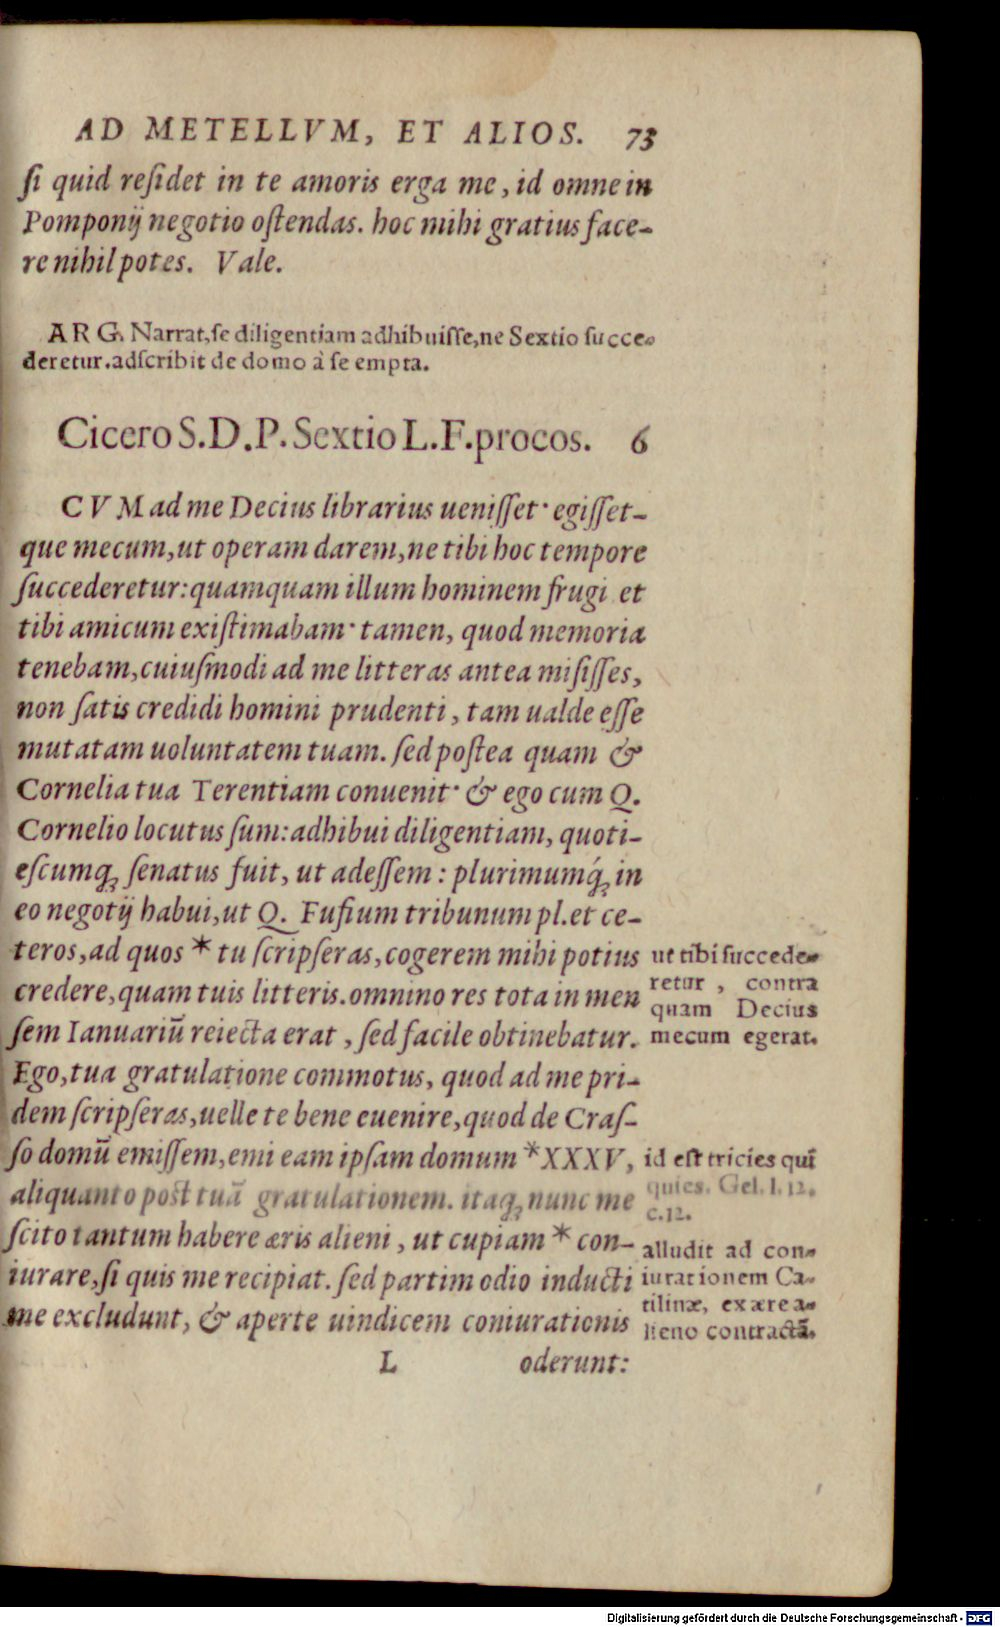 AD METELLVM, ET ALIOS. 73
ſi quid reſidet in te amoris erga me, id omne in
Pomponij negotio oſtendas. hoc mihi gratius face-
re nihil potes. Vale.
ARG. Narrat, ſe diligentiam adhibuiſſe, ne Sextio ſucce-
deretur. adſcribit de domo à ſe empta.
Cicero S.D.P. Sextio L.F. procos. 6
CVM ad me Decius librarius ueniſſet· egiſſet-
que mecum, ut operam darem, ne tibi hoc tempore
ſuccederetur: quamquam illum hominem frugi et
tibi amicum exiſtimabam· tamen, quod memoria
tenebam, cuiuſmodi ad me litteras antea miſiſſes,
non ſatis credidi homini prudenti, tam ualde eſſe
mutatam uoluntatem tuam. ſed poſtea quam &
Cornelia tua Terentiam conuenit· & ego cum Q.
Cornelio locutus ſum: adhibui diligentiam, quoti-
eſcumq; ſenatus fuit, ut adeſſem: plurimumq́; in
eo negotij habui, ut Q. Fufium tribunum pl. et ce-
teros, ad quos * tu ſcripſeras, cogerem mihi potius
credere, quam tuis litteris. omnino res tota in men
ſem Ianuariū reiecta erat, ſed facile obtinebatur.
Ego, tua gratulatione commotus, quod ad me pri-
dem ſcripſeras, uelle te bene euenire, quod de Craſ-
ſo domū emiſſem, emi eam ipſam domum *XXXV,
aliquanto poſt tuā gratulationem. itaq; nunc me
ſcito tantum habere æris alieni, ut cupiam * con-
iurare, ſi quis me recipiat. ſed partim odio inducti
me excludunt, & aperte uindicem coniurationis
L oderunt:
ut tibi ſuccede-
retur, contra
quam Decius
mecum egerat.
id eſt tricies quī
quies. Gel. l. 12.
c. 12.
alludit ad con-
iurationem Ca-
tilinæ, ex ære a-
lieno contractā.
Digitalisierung gefördert durch die Deutsche Forschungsgemeinschaft - DFG